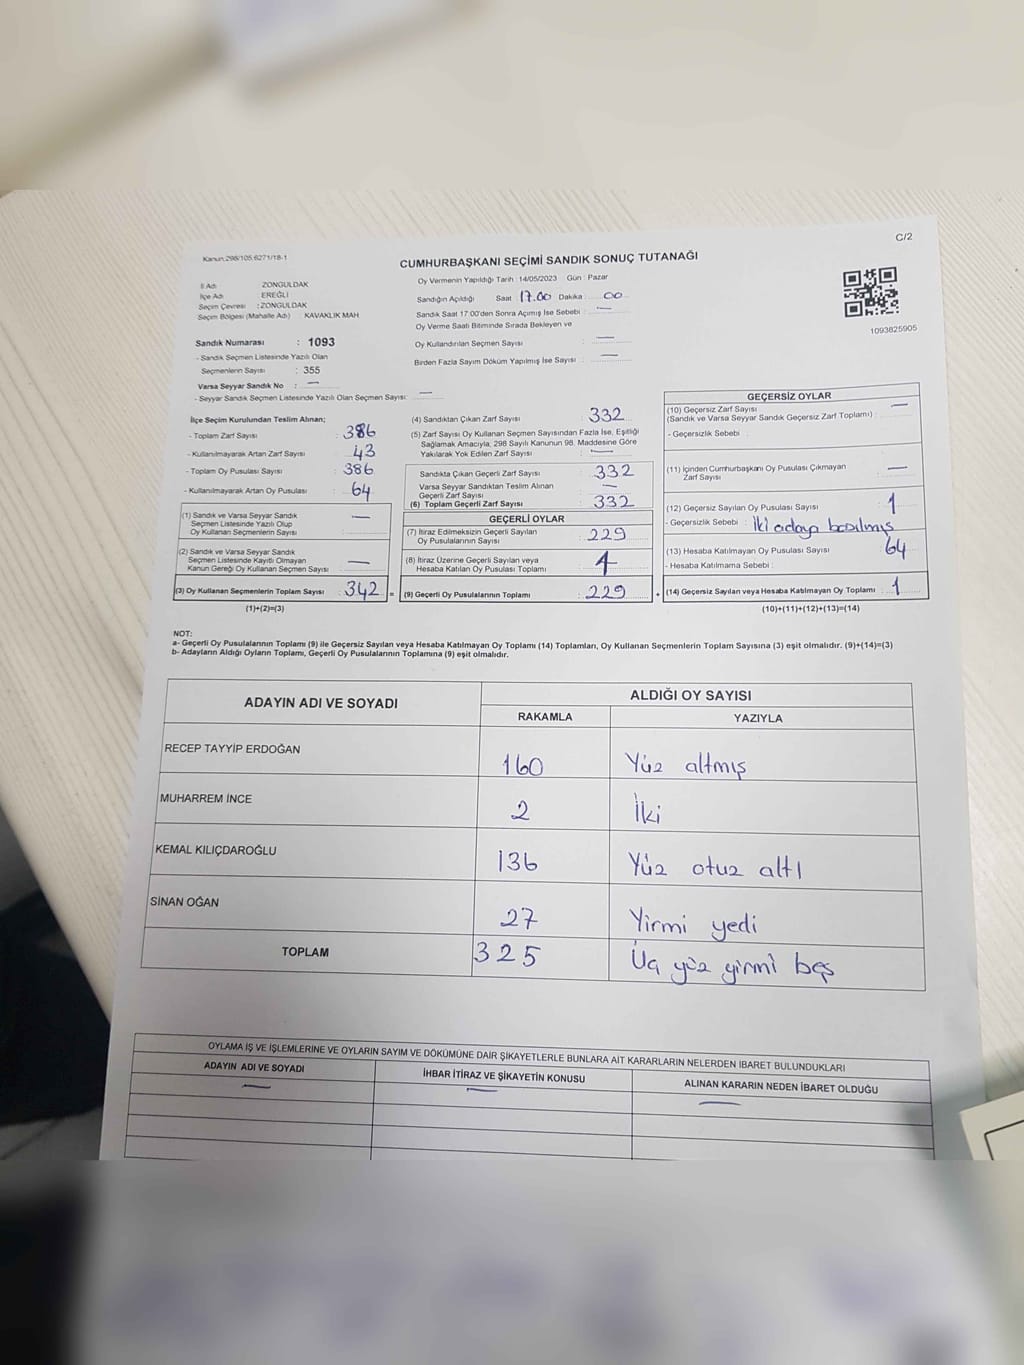 C/2
Kanun:298/105.6271/18-1
CUMHURBAŞKANI SEÇİMİ SANDIK SONUÇ TUTANAĞI
İl Adı : ZONGULDAK
İlçe Adı : EREĞLİ
Seçim Çevresi : ZONGULDAK
Seçim Bölgesi (Mahalle Adı) : KAVAKLIK MAH
Sandık Numarası : 1093
- Sandık Seçmen Listesinde Yazılı Olan
Seçmenlerin Sayısı : 355
Varsa Seyyar Sandık No : —
- Seyyar Sandık Seçmen Listesinde Yazılı Olan Seçmen Sayısı: —
Oy Vermenin Yapıldığı Tarih : 14/05/2023 Gün : Pazar
Sandığın Açıldığı Saat 17.00 Dakika : 00
Sandık Saat 17:00'den Sonra Açımış İse Sebebi : —
Oy Verme Saati Bitiminde Sırada Bekleyen ve
Oy Kullandırılan Seçmen Sayısı : —
Birden Fazla Sayım Döküm Yapılmış İse Sayısı : —
1093825905
İlçe Seçim Kurulundan Teslim Alınan;
- Toplam Zarf Sayısı : 386
- Kullanılmayarak Artan Zarf Sayısı : 43
- Toplam Oy Pusulası Sayısı : 386
- Kullanılmayarak Artan Oy Pusulası : 64
(1) Sandık ve Varsa Seyyar Sandık
Seçmen Listesinde Yazılı Olup
Oy Kullanan Seçmenlerin Sayısı : —
(2) Sandık ve Varsa Seyyar Sandık
Seçmen Listesinde Kayıtlı Olmayan
Kanun Gereği Oy Kullanan Seçmen Sayısı : —
(3) Oy Kullanan Seçmenlerin Toplam Sayısı : 342 =
(1)+(2)=(3)
(4) Sandıktan Çıkan Zarf Sayısı : 332
(5) Zarf Sayısı Oy Kullanan Seçmen Sayısından Fazla İse, Eşitliği
Sağlamak Amacıyla; 298 Sayılı Kanunun 98. Maddesine Göre
Yakılarak Yok Edilen Zarf Sayısı : —
Sandıkta Çıkan Geçerli Zarf Sayısı : 332
Varsa Seyyar Sandıktan Teslim Alınan
Geçerli Zarf Sayısı : —
(6) Toplam Geçerli Zarf Sayısı : 332
GEÇERLİ OYLAR
(7) İtiraz Edilmeksizin Geçerli Sayılan
Oy Pusulalarının Sayısı : 229
(8) İtiraz Üzerine Geçerli Sayılan veya
Hesaba Katılan Oy Pusulası Toplamı :
(9) Geçerli Oy Pusulalarının Toplamı : 229 +
GEÇERSİZ OYLAR
(10) Geçersiz Zarf Sayısı
(Sandık ve Varsa Seyyar Sandık Geçersiz Zarf Toplamı) : —
- Geçersizlik Sebebi :
(11) İçinden Cumhurbaşkanı Oy Pusulası Çıkmayan
Zarf Sayısı : —
(12) Geçersiz Sayılan Oy Pusulası Sayısı : 1
- Geçersizlik Sebebi : İki adaya basılmış
(13) Hesaba Katılmayan Oy Pusulası Sayısı : 64
- Hesaba Katılmama Sebebi :
(14) Geçersiz Sayılan veya Hesaba Katılmayan Oy Toplamı : 1
(10)+(11)+(12)+(13)=(14)
NOT:
a- Geçerli Oy Pusulalarının Toplamı (9) ile Geçersiz Sayılan veya Hesaba Katılmayan Oy Toplamı (14) Toplamları, Oy Kullanan Seçmenlerin Toplam Sayısına (3) eşit olmalıdır. (9)+(14)=(3)
b- Adayların Aldığı Oyların Toplamı, Geçerli Oy Pusulalarının Toplamına (9) eşit olmalıdır.
ADAYIN ADI VE SOYADI
ALDIĞI OY SAYISI
RAKAMLA YAZIYLA
RECEP TAYYİP ERDOĞAN 160 Yüz altmış
MUHARREM İNCE 2 İki
KEMAL KILIÇDAROĞLU 136 Yüz otuz altı
SİNAN OĞAN 27 Yirmi yedi
TOPLAM 325 Üç yüz yirmi beş
OYLAMA İŞ VE İŞLEMLERİNE VE OYLARIN SAYIM VE DÖKÜMÜNE DAİR ŞİKAYETLERLE BUNLARA AİT KARARLARIN NELERDEN İBARET BULUNDUKLARI
ADAYIN ADI VE SOYADI İHBAR İTİRAZ VE ŞİKAYETİN KONUSU ALINAN KARARIN NEDEN İBARET OLDUĞU
— — —